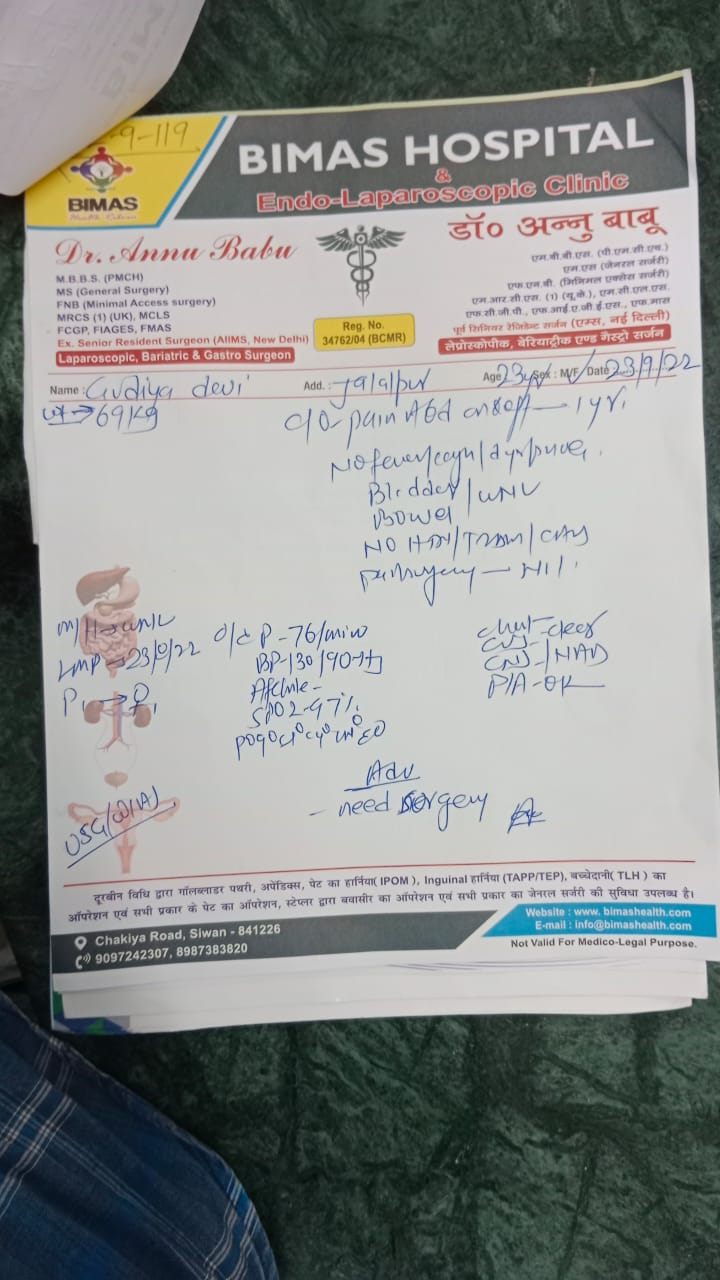 -9-119
BIMAS HOSPITAL
&
Endo-Laparoscopic Clinic
BIMAS
Dr. Annu Babu
डॉ० अन्नु बाबू
M.B.B.S. (PMCH)
MS (General Surgery)
FNB (Minimal Access surgery)
MRCS (1) (UK), MCLS
FCGP, FIAGES, FMAS
Ex. Senior Resident Surgeon (AIIMS, New Delhi)
Laparoscopic, Bariatric & Gastro Surgeon
Reg. No.
34762/04 (BCMR)
एम.बी.बी.एस. (पी.एम.सी.एच.)
एम.एस (जेनरल सर्जरी)
एफ.एन.बी. (मिनिमल एक्सेस सर्जरी)
एम.आर.सी.एस. (1) (यू.के.), एम.सी.एल.एस.
एफ.सी.जी.पी., एफ.आई.ए.जी.ई.एस., एफ.मास
पूर्व सिनियर रेजिडेन्ट सर्जन (एम्स, नई दिल्ली)
लेप्रोस्कोपीक, बेरियाट्रीक एण्ड गैस्ट्रो सर्जन
Name : Gudiya devi Add. : Jalalpur Age 23yr Sex : M/F Date 23/9/22
wt → 69kg
c/o - pain Abd on & off - 1 yr.
No fever/cough/
Bladder/
Bowel
NO HTN/T2DM/CAD
- Nil.
M/H
LMP → 23/9/22
O/E P - 76/min
BP - 130/90
Afebrile -
SPO2 - 97%
Chest - clear
CVS
CNS / NAD
P/A - OK
USG (W/A)
Adv
- need surgery
दूरबीन विधि द्वारा गॉलब्लाडर पथरी, अपेंडिक्स, पेट का हार्निया( IPOM ), Inguinal हार्निया (TAPP/TEP), बच्चेदानी( TLH ) का
ऑपरेशन एवं सभी प्रकार के पेट का ऑपरेशन, स्टेप्लर द्वारा बवासीर का ऑपरेशन एवं सभी प्रकार का जेनरल सर्जरी की सुविधा उपलब्ध है।
Chakiya Road, Siwan - 841226
9097242307, 8987383820
Website : www. bimashealth.com
E-mail : info@bimashealth.com
Not Valid For Medico-Legal Purpose.